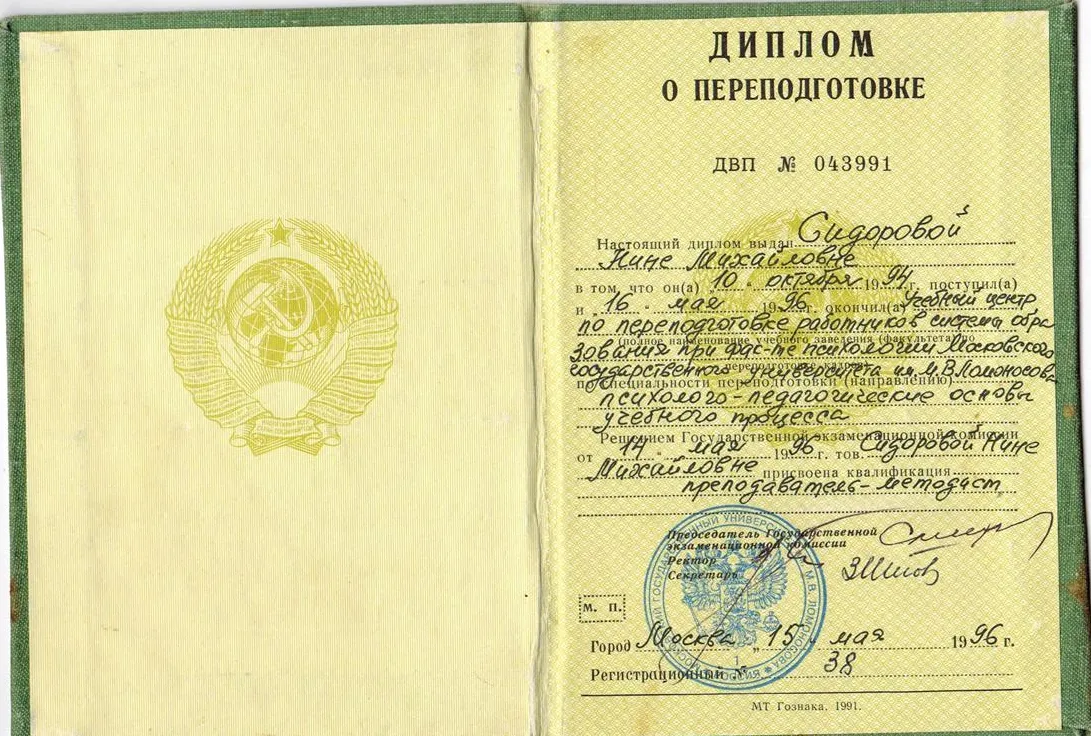 ДИПЛОМ
О ПЕРЕПОДГОТОВКЕ
ДВП № 043991
Настоящий диплом выдан Сидоровой
Нине Михайловне
в том, что он(а) „10 " октября 1994 г. поступил(а)
и „16 " мая 1996 г. окончил(а) Учебный центр
по переподготовке работников система обра
(полное наименование учебного заведения (факультета) по
зования при фак-те психологии Московского
государственного университета им. М.В.Ломоносова
по специальности переподготовки (направлению)
психолого-педагогические основы
учебного процесса
Решением Государственной экзаменационной комиссии
от „14 " мая 1996 г. тов. Сидоровой Нине
Михайловне присвоена квалификация
преподаватель-методист
Председатель Государственной
экзаменационной комиссии
Ректор
Секретарь
М. П.
Город Москва „15 " мая 1996 г.
Регистрационный № 38
МТ Гознака. 1991.